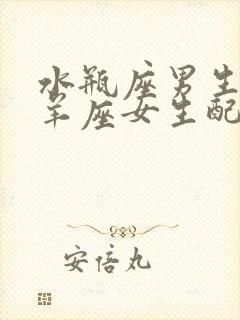 水瓶座男生
羊座女生配
安倍丸